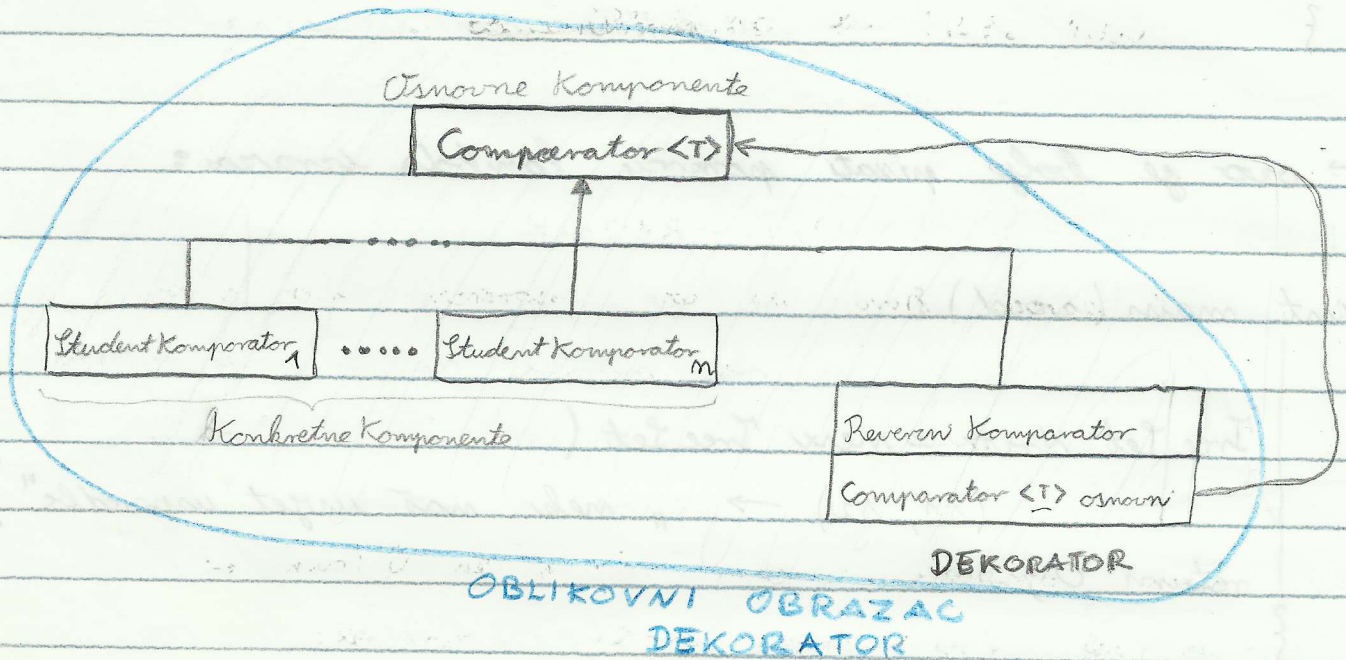 Osnovne Komponente
Comparator <T>
.....
Student Komporator 1
.....
Student Komporator n
Konkretne Komponente
Reverzn Komparator
Comparator <T> osnovni
DEKORATOR
OBLIKOVNI OBRAZAC
DEKORATOR